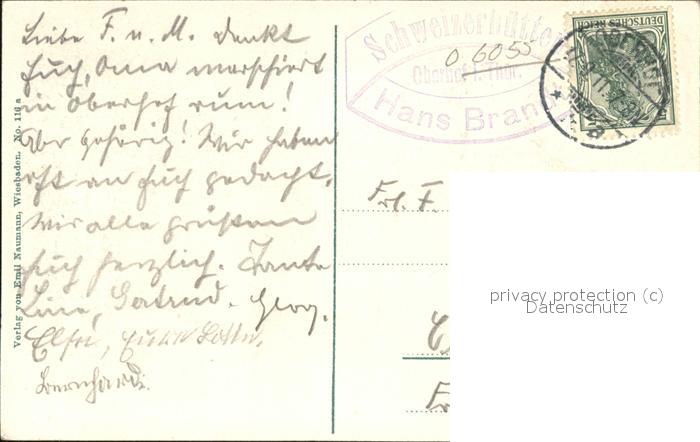 Liebe F. u. M. Denkt
Euch, Oma marschiert
in Oberhof rum!
Aber gehörig! Wir haben
oft an Euch gedacht.
Wir alle grüßen
Euch herzlich. Tante
Line, Gertrud. Georg.
Elfri, Eure Lotte.
Bernhardi.
Verlag von Emil Naumann, Wiesbaden. No. 116 a
Schweizerhütte
Oberhof i. Thür.
Hans Brand
0 6055
DEUTSCHES REICH
OBERHOF
Frl. F
privacy protection (c)
Datenschutz